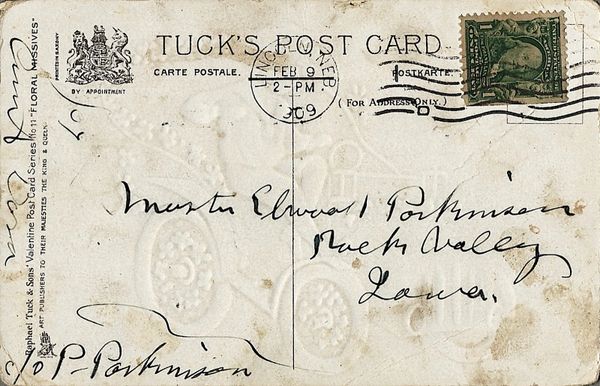 TUCK'S POST CARD
CARTE POSTALE.
POSTKARTE
(FOR ADDRESS ONLY.)
BY APPOINTMENT
PRINTED IN SAXONY
Raphael Tuck & Sons' Valentine Post Card Series No 11 "FLORAL MISSIVES"
ART PUBLISHERS TO THEIR MAJESTIES THE KING & QUEEN
LINCOLN, NEB.
FEB 9
2-PM
1909
D
1
Master Elwood Parkinson
Rock Valley
Iowa.
c/o P-Parkinson